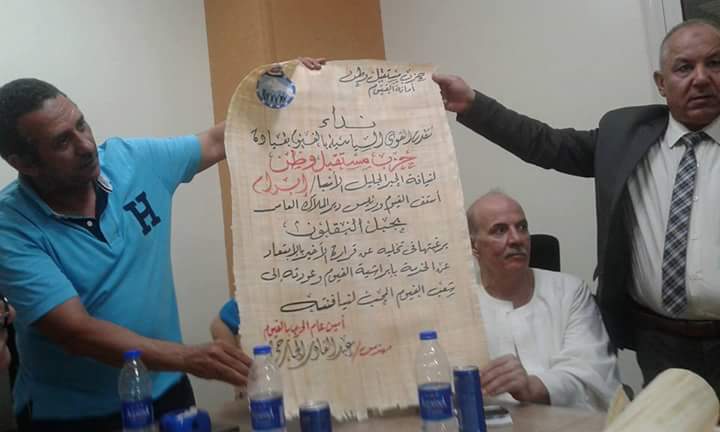 حزب مستقبل وطن
أمانة الفيوم
نداء
تتقدم القوى السياسية بالفيوم بقيادة
حزب مستقبل وطن
لنيافة الحبر الجليل الأنبا/ إبرام
أسقف الفيوم ورئيس دير الملاك العامر
بجبل النقلون
برغبتها فى تخليه عن قراره الأخير بالابتعاد
عن الخدمة بإبراشية الفيوم وعودته إلى
شعب الفيوم المحب لنيافته
أمين عام الحزب بالفيوم
مهندس/ عبد القادر
H